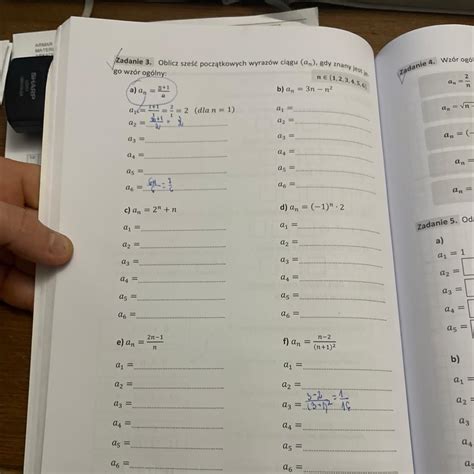 SHARP
Zadanie 3. Oblicz sześć początkowych wyrazów ciągu (aₙ), gdy znany jest je-
go wzór ogólny:
n ∈ {1, 2, 3, 4, 5, 6}
a) aₙ = (n+1)/n
a₁ = (1+1)/1 = 2/1 = 2 (dla n = 1)
a₂ =
a₃ =
a₄ =
a₅ =
a₆ =
b) aₙ = 3n − n²
a₁ =
a₂ =
a₃ =
a₄ =
a₅ =
a₆ =
c) aₙ = 2ⁿ + n
a₁ =
a₂ =
a₃ =
a₄ =
a₅ =
a₆ =
d) aₙ = (−1)ⁿ · 2
a₁ =
a₂ =
a₃ =
a₄ =
a₅ =
a₆ =
e) aₙ = (2n−1)/n
a₁ =
a₂ =
a₃ =
a₄ =
a₅ =
a₆ =
f) aₙ = (n−2)/(n+1)²
a₁ =
a₂ =
a₃ = (3−2)/(3+1)² = 1/16
a₄ =
a₅ =
a₆ =
Zadanie 4. Wzór
aₙ = 2/n
aₙ =
aₙ =
aₙ =
aₙ =
Zadanie 5.
a)
a₁ = 1
a₂ =
a₃ =
a₄ =
a₅ =
b)
a₁ =
a₂ =
a₃
a₄